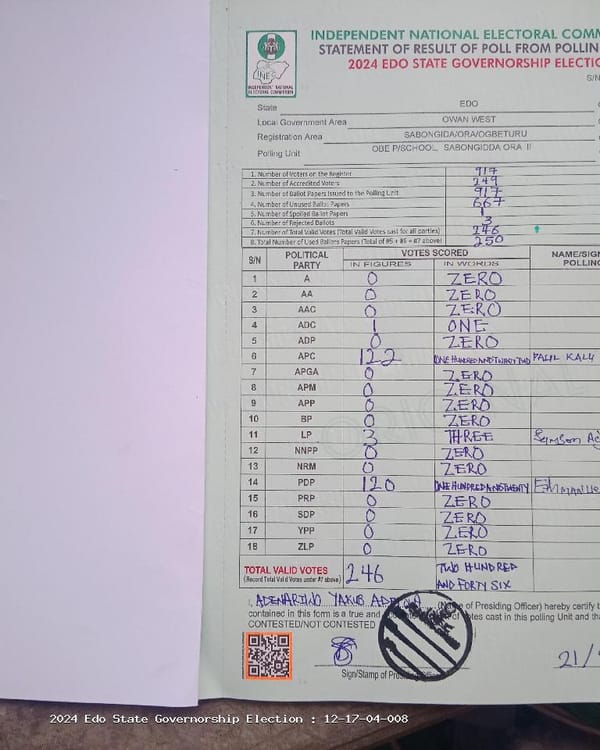 INDEPENDENT NATIONAL ELECTORAL COMM
STATEMENT OF RESULT OF POLL FROM POLLIN
2024 EDO STATE GOVERNORSHIP ELECTIO
INEC
INDEPENDENT NATIONAL
ELECTORAL COMMISSION
S/N
State EDO
Local Government Area OWAN WEST
Registration Area SABONGIDA/ORA/OGBETURU
Polling Unit OBE P/SCHOOL, SABONGIDDA ORA II
1. Number of Voters on the Register 917
2. Number of Accredited Voters 249
3. Number of Ballot Papers Issued to the Polling Unit 917
4. Number of Unused Ballot Papers 667
5. Number of Spoiled Ballot Papers 1
6. Number of Rejected Ballots 3
7. Number of Total Valid Votes (Total Valid Votes cast for all parties) 246
8. Total Number of Used Ballot Papers (Total of #5 + #6 + #7 above) 250
S/N POLITICAL PARTY VOTES SCORED NAME/SIG
IN FIGURES IN WORDS POLLING
1 A 0 ZERO
2 AA 0 ZERO
3 AAC 0 ZERO
4 ADC 1 ONE
5 ADP 0 ZERO
6 APC 122 ONE HUNDRED AND TWENTY TWO KALU
7 APGA 0 ZERO
8 APM 0 ZERO
9 APP 0 ZERO
10 BP 0 ZERO
11 LP 3 THREE
12 NNPP 0 ZERO
13 NRM 0 ZERO
14 PDP 120 ONE HUNDRED AND TWENTY
15 PRP 0 ZERO
16 SDP 0 ZERO
17 YPP 0 ZERO
18 ZLP 0 ZERO
TOTAL VALID VOTES 246 TWO HUNDRED
(Record Total Valid Votes under #7 above) AND FORTY SIX
I, YAKUB (Name of Presiding Officer) hereby certify t
contained in this form is a true and of votes cast in this polling Unit and tha
CONTESTED/NOT CONTESTED
21/
Sign/Stamp of Presiding Officer
2024 Edo State Governorship Election : 12-17-04-008